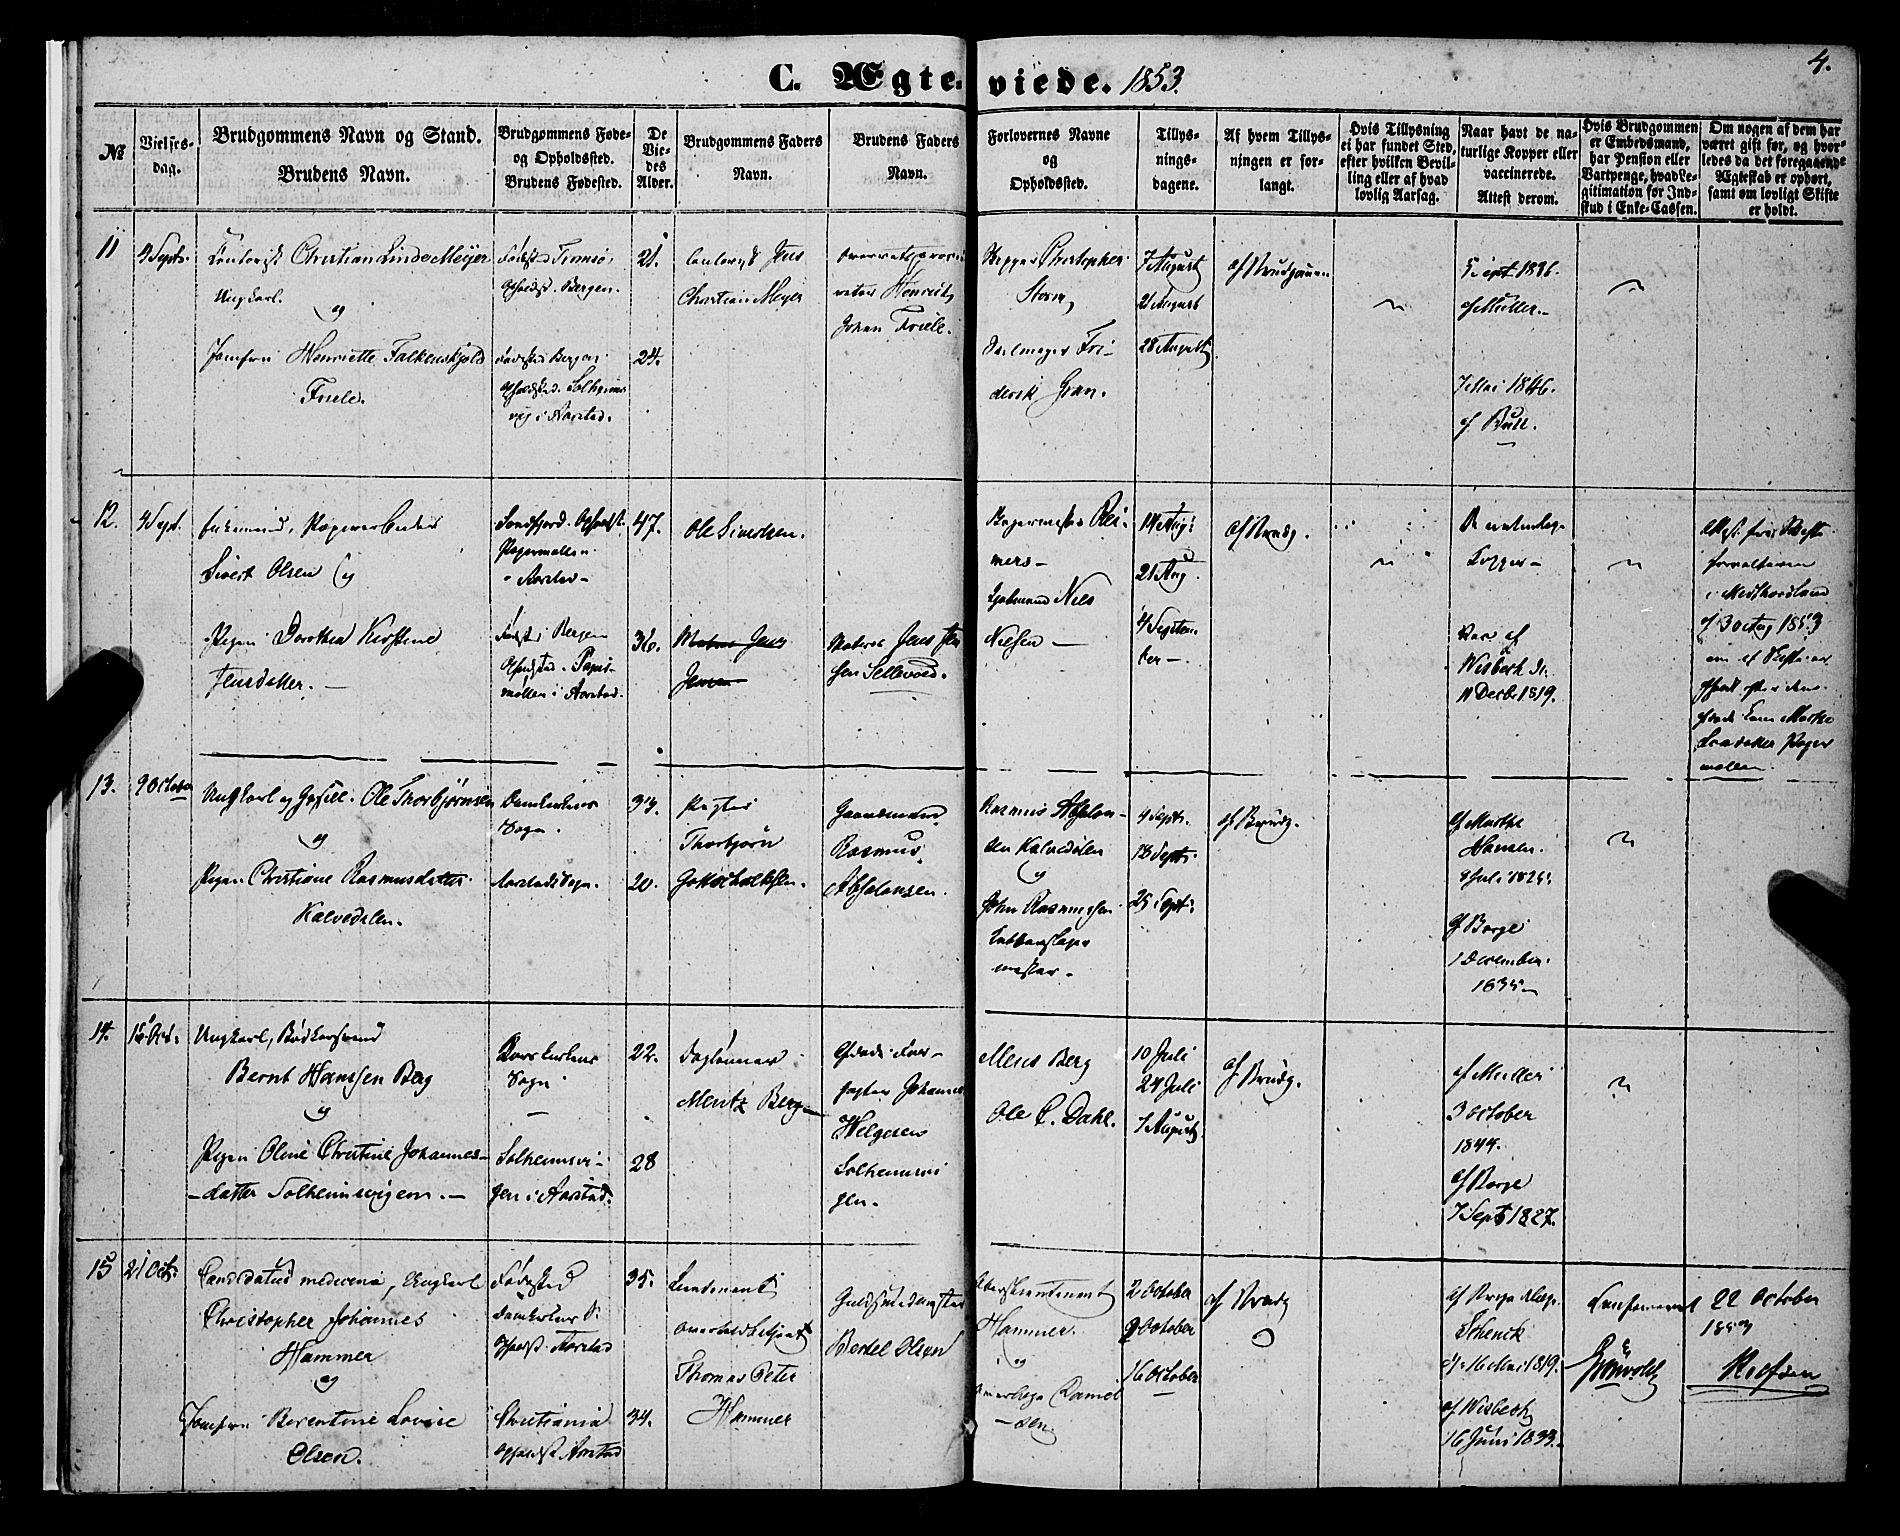 4.
C. Ægte-viede. 1853.
№
Vielses-
dag.
Brudgommens Navn og Stand.
Brudens Navn.
Brudgommens Føde-
og Opholdssted.
Brudens Fødested.
De
Vie-
des
Alder.
Brudgommens Faders
Navn.
Brudens Faders
Navn.
Forlovernes Navne
og
Opholdssted.
Tillys-
nings-
dagene.
Af hvem Tillys-
ningen er for-
langt.
Hvis Tillysning
ei har fundet Sted,
efter hvilken Bevil-
ling eller af hvad
lovlig Aarsag.
Naar havt de na-
turlige Kopper eller
vaccinerede.
Attest derom.
Hvis Brudgommen
er Embedsmand,
har Pension eller
Vartpenge, hvad Le-
gitimation for Ind-
skud i Enke-Cassen.
Om nogen af dem har
været gift før, og hvor-
ledes da det foregaaende
Ægteskab er ophørt,
samt om lovligt Skifte
er holdt.
11
4 Septr.
Christian Linde Meyer
Ungkarl.
og
Jomfru Henriette Falkenskjold
Friele.
Fødested Tromsø,
Opholdst. Bergen.
Fødested Bergen
Opholdsted. Solheims
vig i Aarstad.
21.
24.
Jens
Christian Meyer
Henrik
Johan Friele.
Skipper Christopher
Storm,
Fri-
derik Gran.
7 August
21 August
28 August
af Brudgommen
5 Sept 1836.
af Müller.
7 Mai 1846.
af Bull.
12.
4 Sept.
Enkemand, Papirarbeider
Sivert Olsen og
Pigen Dorothea Kirstine
Jensdatter.
Sondfjord. Opholdst.
Papirmøllen
Aarstad
Fødested Bergen
Opholdsted. Papir-
møllen i Aarstad.
47.
36.
Ole Sivertsen.
Matros Jens
Jensen
Matros Jens Jen
sen Sellevold.
Rei-
mers
Niels
Nielsen
14 Aug:
21 Aug.
4 Septem-
ber
af Brudg.
De naturlige
Kopper
Vac. af
Wisbech d.
11 Decbr 1819.
Attest fra Skifte
forvalteren
i Midthordland
af 30 Aug 1853
13.
9 October
Ungkarl og Ole Thorbjørnsen
og
Pigen Christiane Rasmusdatter
Kalvedalen.
Domkirkens
Sogn.
Aarstads Sogn.
34.
20.
Thorbjørn
Gotskalksen.
Gaardmand
Rasmus
Absalonsen.
Rasmus Absalon-
sen Kalvedalen
og
John Rasmussen
4 Septr.
18 Septr.
25 Sept:
af Brudg.
af Marthe
Hansen.
af Borge
1 December
1835
14.
16 Oct.
Ungkarl, Bødkersvend
Bernt Hanssen Berg
og
Pigen Oline Christine Johannes-
datter Solheimsvigen.
Korskirkens
Sogn
Solheimsvi-
gen i Aarstad.
22.
28
Daglønner
Mentz Berg
Johannes
Helgesen
Solheimsvi
gen.
Mens Berg
Ole C. Dahl.
10 Juli
24 Juli
7 August
af Brudg.
af Müller
3 October
1844.
af Borge
7 Septb 1827.
15
21 Oct:
Candidatus medicinæ, Ungkarl
Christopher Johannes
Hammer
og
Jomfru Berentine Lovise
Olsen.
Fødested
Domkirkens S.
Opholdst. Aarstad
Christiania
Opholdst Aarstad
35.
34.
Lieutenant
Thomas Peter
Hammer
Guldsmedmester
Bertel Olsen
Hammer.
og
Daniel
sen
2 October
9 October
16 October
af Brudg
Schenck
d. 16 Mai 1819.
af Wisbech
16 Juni 1833.
Grønvold
22 October
1853